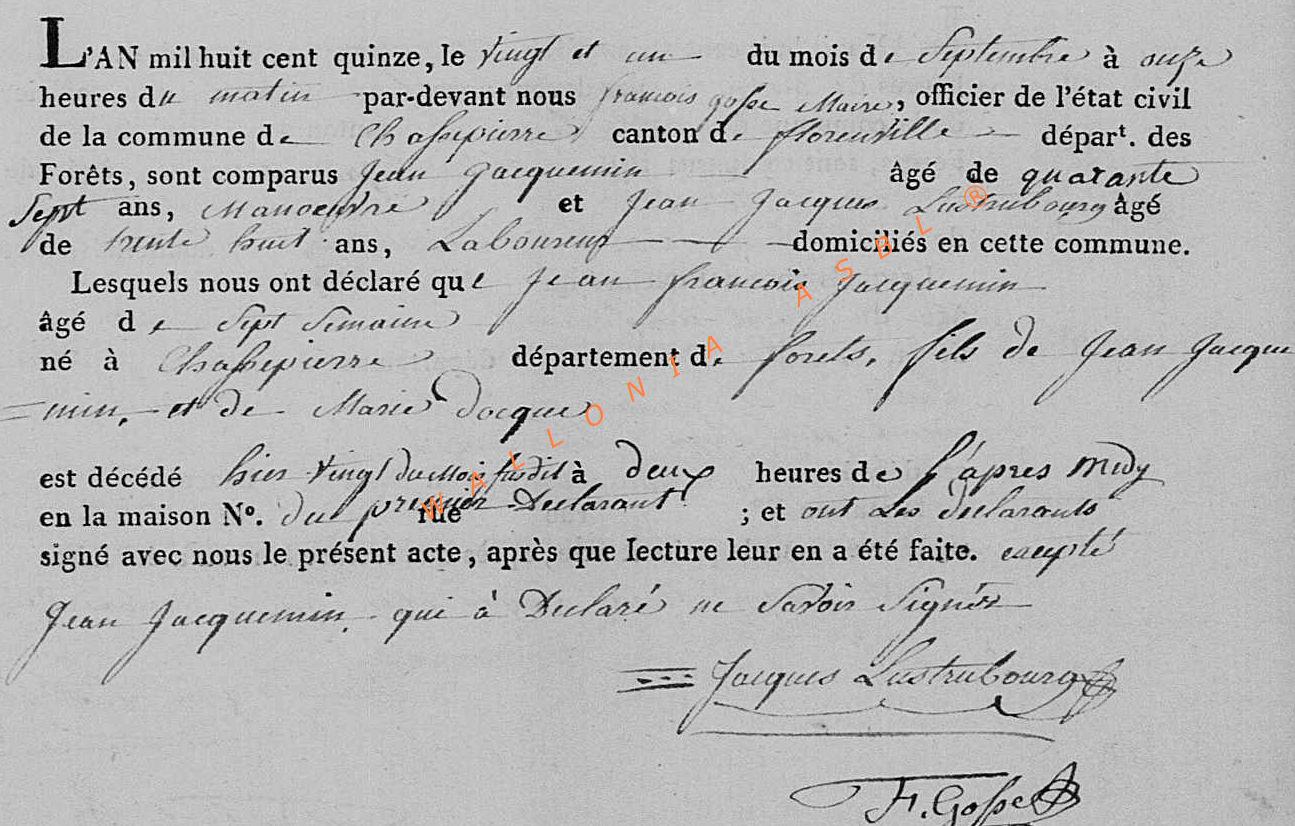 L'AN mil huit cent quinze, le vingt et un du mois de Septembre à onze
heures du matin par-devant nous françois gosse Maire, officier de l'état civil
de la commune de Chassepierre canton de florenville départ. des
Forêts, sont comparus Jean Jacquemin âgé de quarante
Sept ans, Manoeuvre et Jean Jacques Lustrubourg âgé
de trente huit ans, Laboureur domiciliés en cette commune.
Lesquels nous ont déclaré que Jean françois Jacquemin
âgé de Sept Semaine
né à Chassepierre département de forets, fils de Jean Jacque
=min, et de Marie Docque
est décédé hier vingt du mois susdit à deux heures de l'apres midy
en la maison N°. du premier Declarant rue ; et ont Les declarants
signé avec nous le présent acte, après que lecture leur en a été faite. excepté
Jean Jacquemin qui à Declaré ne Savoir Signér
Jacques Lustrubourg
F. Gosse
WALLONIA ASBL ®